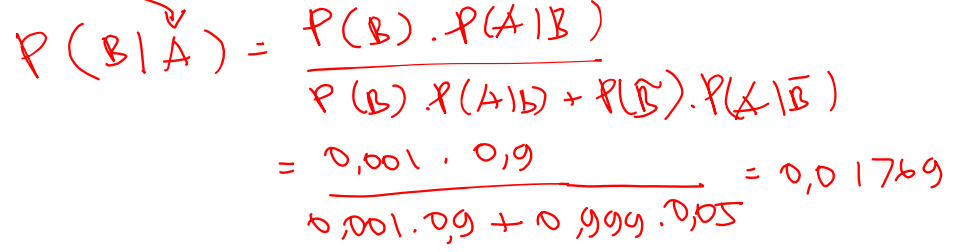 P(B|A) = P(B).P(A|B)
P(B).P(A|b) + P(B̄).P(A|B̄)
= 0,001 . 0,9
0,001.0,9 + 0,999.0,05 = 0,01769